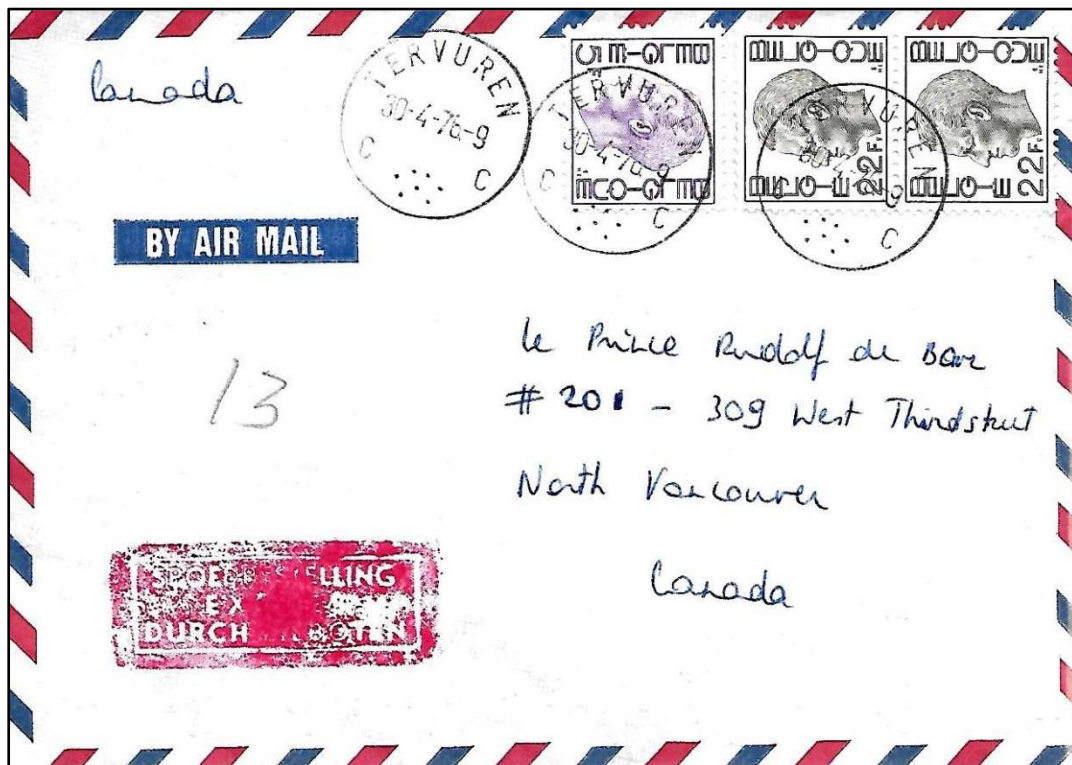 Canada
TERVUREN
30-4-76-9
C C
TERVUREN
30-4-76-9
C C
TERVUREN
C
BELGIQUE
BELGIE 5F
BELGIQUE
BELGIE 22F
BELGIQUE
BELGIE 22F
BY AIR MAIL
13
le Prince Rudolf de Bar
# 201 - 309 West Thirdstreet
North Vancouver
Canada
SPOEDBESTELLING
DURCH EILBOTEN